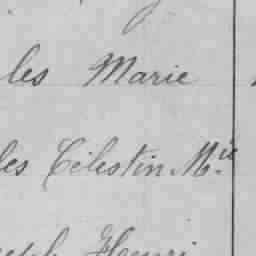 les Marie
les Célestin M.ie
eph Henri